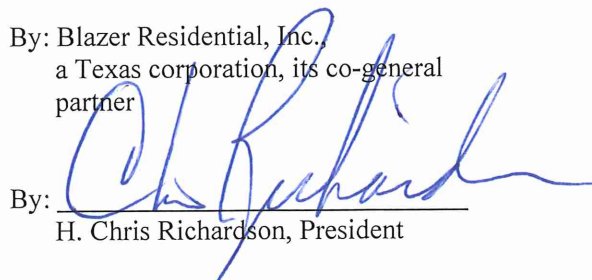 By: Blazer Residential, Inc.,
a Texas corporation, its co-general
partner
Chris Richardson
By:
H. Chris Richardson, President